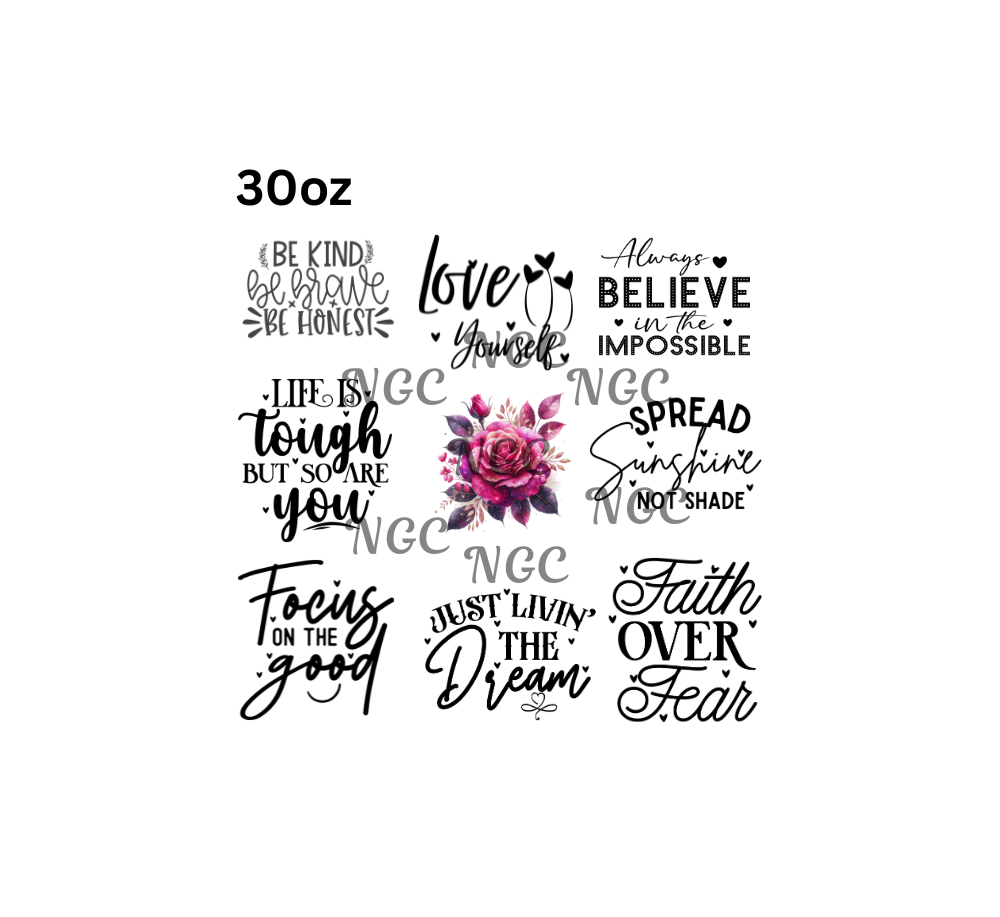 30oz
BE KIND
be brave
BE HONEST
Love
Yourself
Always
BELIEVE
in the
IMPOSSIBLE
NGC
NGC
NGC
LIFE IS
tough
BUT SO ARE
you
SPREAD
Sunshine
NOT SHADE
NGC
NGC
NGC
Focus
ON THE
good
JUST LIVIN'
THE
Dream
Faith
OVER
Fear